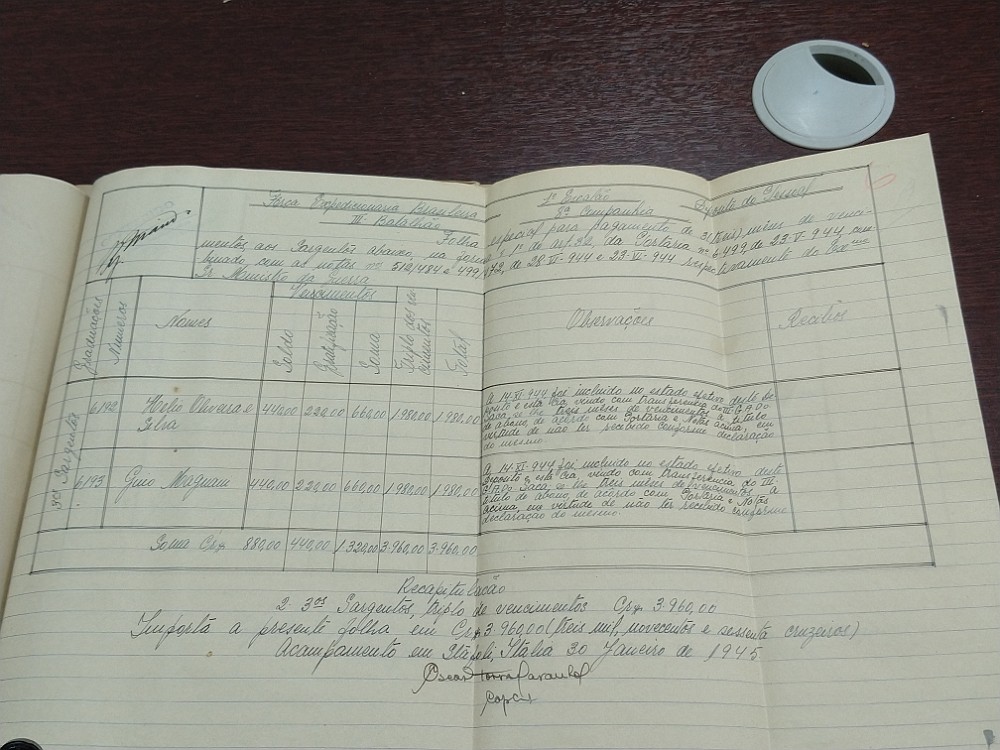 Força Expedicionaria Brasileira 1º Escalão Deposito de Pessoal
III Batalhão 8ª Companhia
Folha especial para pagamento de 3 (treis) mêses de venci-
mentos aos Sargentos abaixo, na forma § 1º do art. 32, da Portaria nº 6.499, de 23-VI-944, com
binado com as notas nºs 312/484 e 499/472, de 28-VI-944 e 29-VI-944 respectivamente do Exmo
Sr Ministro da Guerra
Graduações
Números
Nomes
Vencimentos
Soldo
Gratificação
Soma
Triplo dos vencimentos
Total
Observações
Recibos
3os Sargentos
6192 Helio Oliveira e Silva 440,00 220,00 660,00 1.980,00 1.980,00
A 14-XI-944 foi incluido no estado efetivo deste De
posito e esta Cia, vindo com transferencia do III G.A.Do
Saca-se-lhe treis mêses de vencimentos a titulo
de abono, de acordo com Portaria e Notas acima, em
virtude de não ter recebido conforme declaração
do mesmo.
6193 Gino 440,00 220,00 660,00 1.980,00 1.980,00
A 14-XI-944 foi incluido no estado efetivo deste
Deposito e esta Cia, vindo com transferencia do III
G.A.Do Saca-se-lhe treis mêses de vencimentos a
titulo de abono, de acordo com Portaria e Notas
acima, em virtude de não ter recebido conforme
declaração do mesmo.
Soma Cr$ 880,00 440,00 1.320,00 3.960,00 3.960,00
Recapitulacão
2 3os Sargentos, triplo de vencimentos Cr$ 3.960,00
Importa a presente folha em Cr$ 3.960,00 (treis mil, novecentos e sessenta cruzeiros)
Acampamento em Stápoli, Itália 30 Janeiro de 1945
Oscar